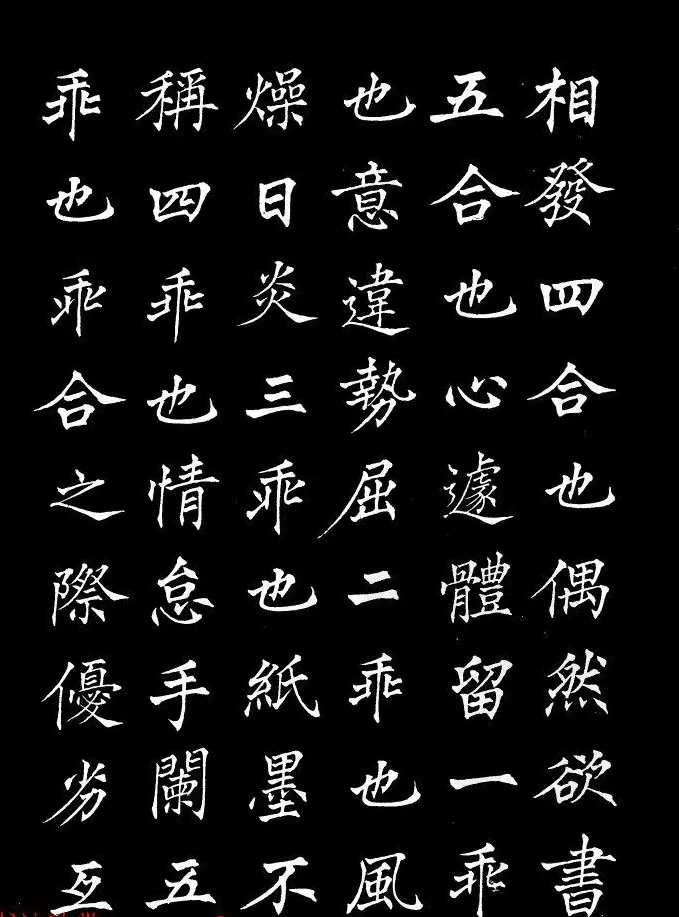 相發四合也偶然欲書
五合也心遽體留一乖
也意違勢屈二乖也風
燥日炎三乖也紙墨不
稱四乖也情怠手闌五
乖也乖合之際優劣互